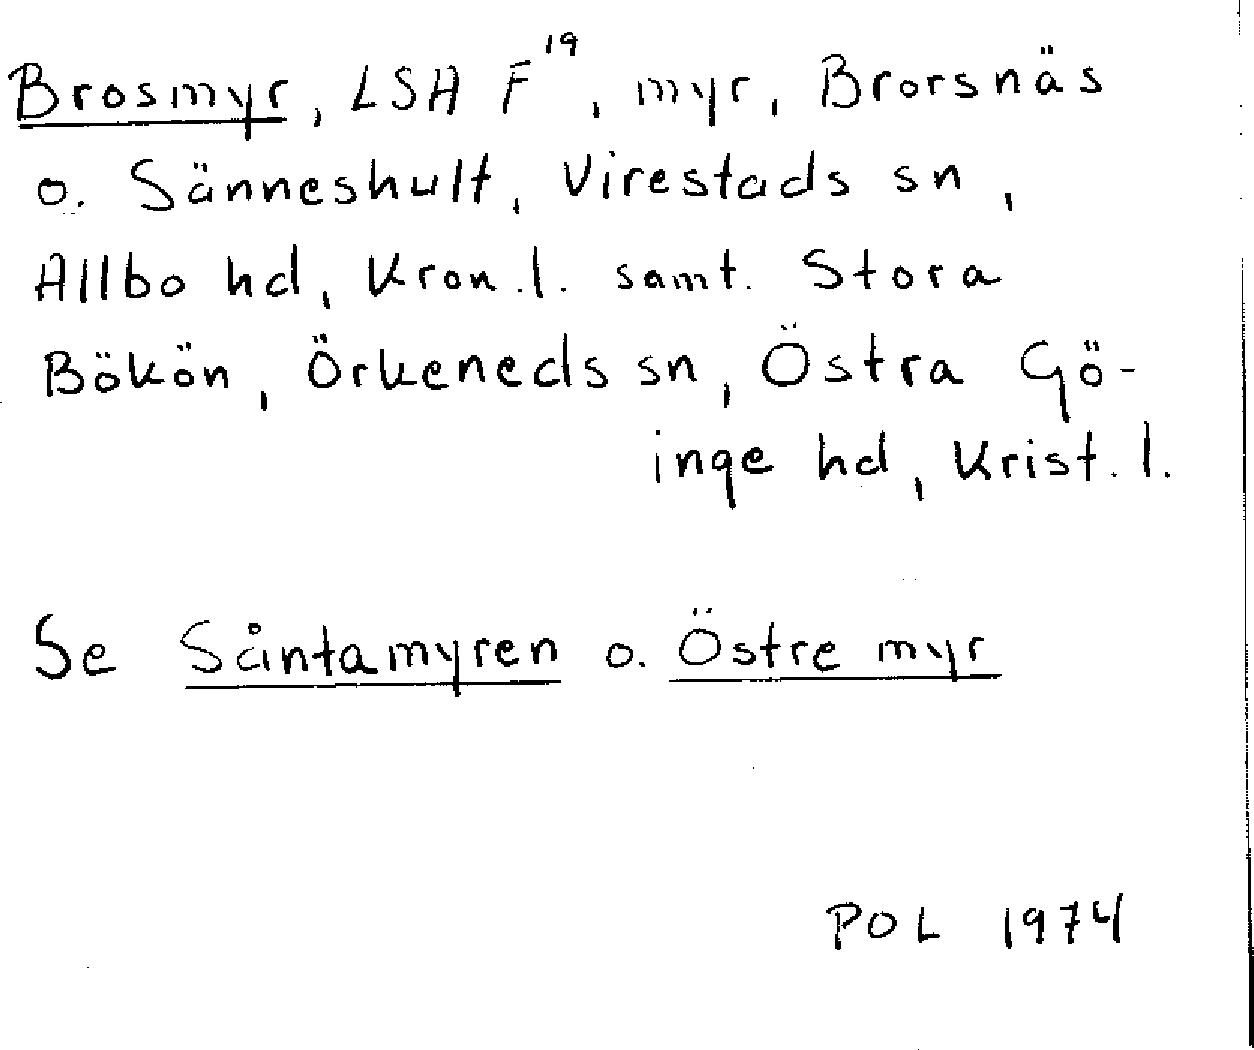 Brosmyr, LSA F¹⁹, myr, Brorsnäs
o. Sänneshult, Virestads sn,
Allbo hd, Kron.l. samt. Stora
Bökön, Örkeneds sn, Östra Gö-
inge hd, Krist.l.
Se Såntamyren o. Östre myr
POL 1974